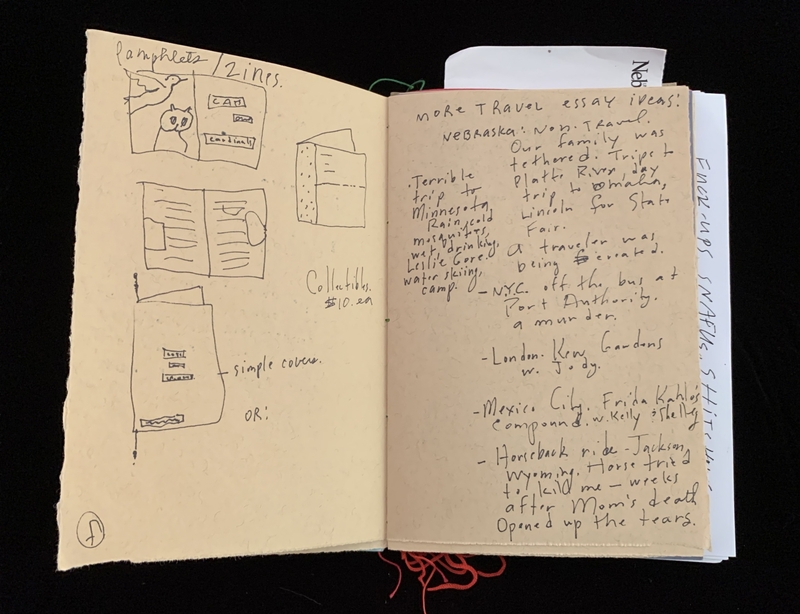 Pamphlets / Zines.
CATS
AND
Cardinals
Collectibles.
$10. ea
simple covers.
OR:
f
MORE TRAVEL essay ideas:
NEBRASKA: Non-Travel.
Our family was
tethered. Trips to
Platte River, day
trip to Omaha,
Lincoln for State
Fair.
A traveler was
being created.
.Terrible
trip to
Minnesota,
Rain, cold
mosquitos,
wet, drinking,
Leslie Gore,
water skiing,
camp.
- N.Y.C. off the bus at
Port Authority.
a murder.
- London. Kew Gardens
w. Jody.
- Mexico City. Frida Kahlo's
Compound. w. Kelly + Shelley
- Horseback ride - Jackson,
Wyoming. Horse tried
to kill me - weeks
after Mom's death
Opened up the tears.
Neb
FUCK-UPS, SNAFUs,